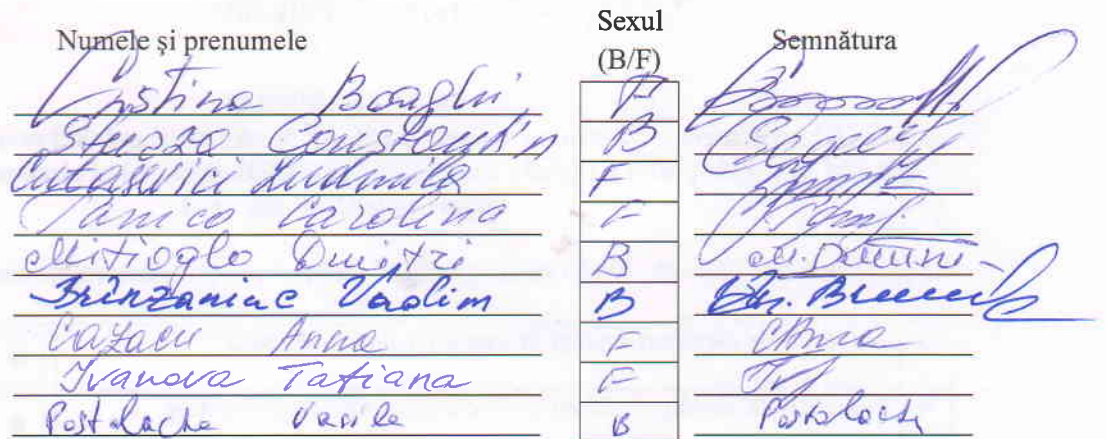 Numele și prenumele Sexul (B/F) Semnătura
Cristina Boaghi F
Constantin B
Ludmila F
Panico Carolina F
Mitioglo Dmitri B M. Dmitri
Brînzaniuc Vadim B
Cazacu Anna F CAnna
Ivanova Tatiana F
Postolache Vasile B Postolache